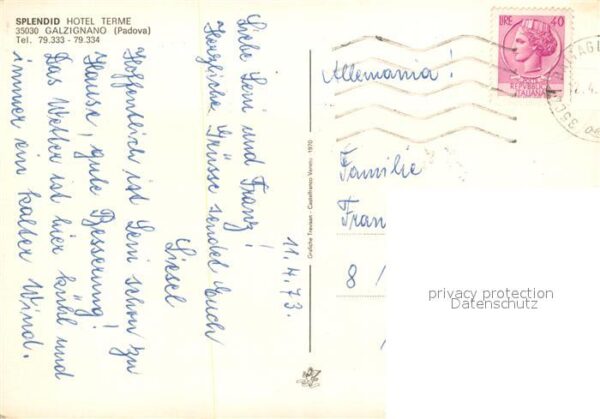 SPLENDID HOTEL TERME
35030 GALZIGNANO (Padova)
Tel. 79.333 - 79.334
11.4.73.
Liebe Leni und Franz!
Herzliche Grüsse sendet Euch
Liesel
Hoffentlich ist Leni schon zu
Hause, gute Besserung!
Das Wetter ist hier kühl und
immer ein kalter Wind.
Grafiche Trevisan - Castelfranco Veneto - 1970
LIRE 40
REPUBBLICA
ITALIANA
Allemania!
Familie
Fran
8 /
privacy protection
Datenschutz